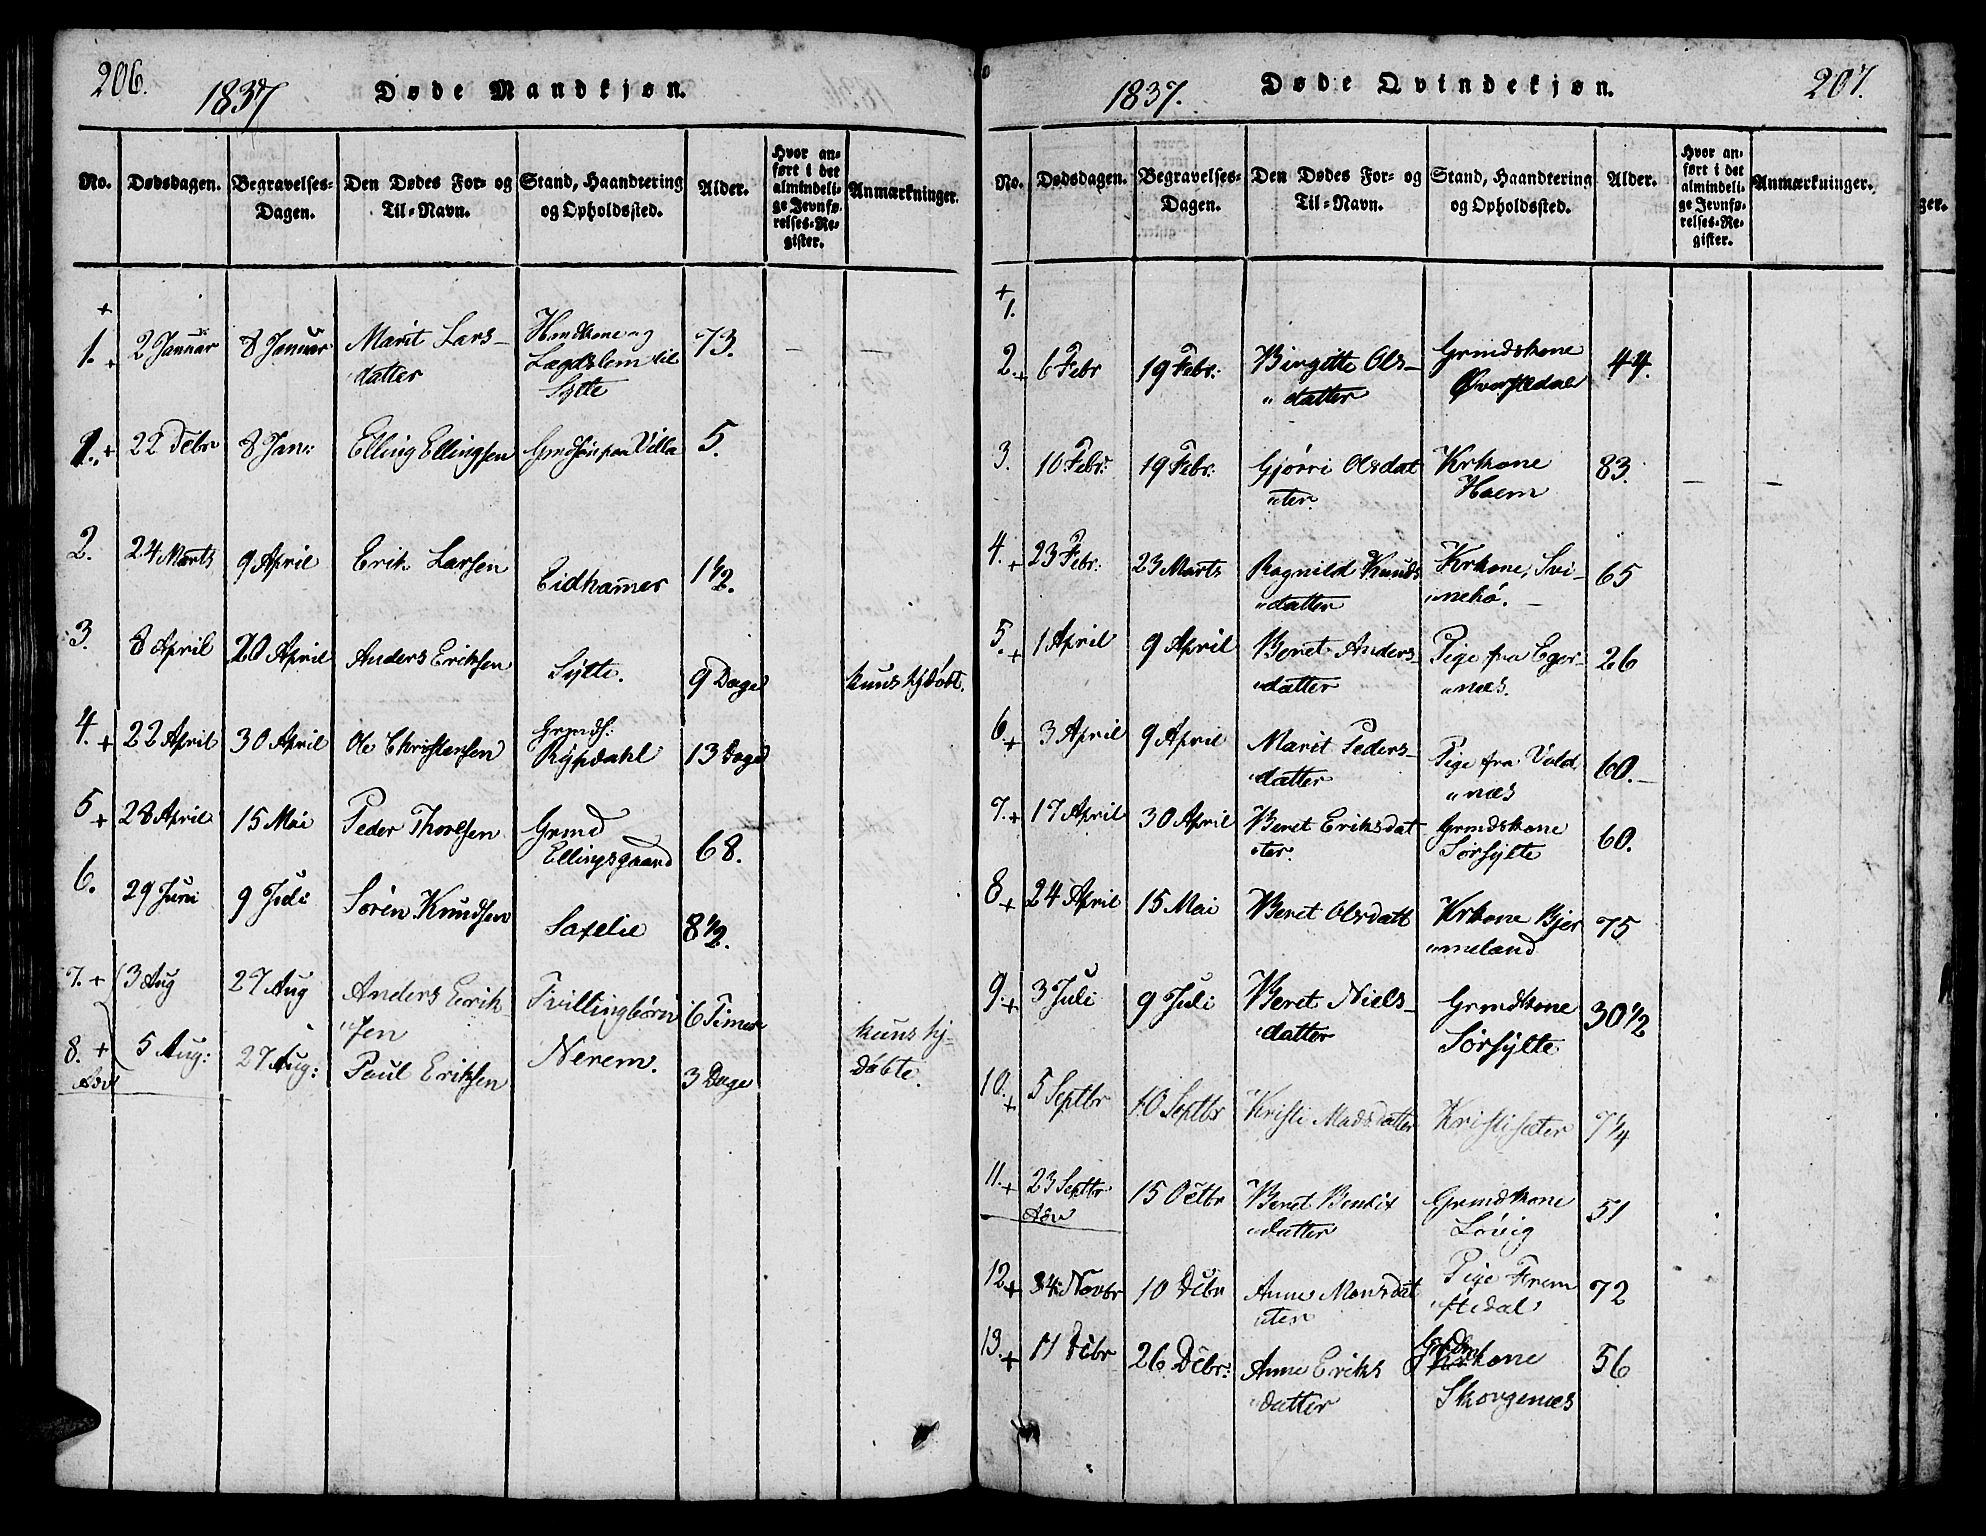 206.
1837
Døde Mandkjøn.
No.
Dødsdagen.
Begravelses-
Dagen.
Den Dødes For- og
Til-Navn.
Stand, Haandtering
og Opholdssted.
Alder.
Hvor an-
ført i det
almindeli-
ge Jevnfø-
relses-Re-
gister.
Anmærkninger.
+
1. + 2 Januar 8 Januar Marit Lars-
datter
Huuskone og
Lægdslem til
Sylte
73. — —
1. + 22 Debr 8 Jan: Elling Ellingsen Grmdsøn paa Villa 5.
2. 24 Marts 9 April Erik Larsen Eidhamer 1 1/2.
3. 8 April 20 April Anders Eriksen Sylte. 9 Dage kuns hjdøbt.
4. + 22 April 30 April Ole Christensen Grmds:
Rypdahl 13 Dage
5 + 28 April 15 Mai Peder Thoresen Grmd
Ellingsgaard 68.
6. 29 Juni 9 Juli Søren Knudsen Saxelie 8 1/2.
7. + 3 Aug 27 Aug Anders Erik-
"sen
Tvillingbørn 6 Timer kuns hj-
8. + 5 Aug: 27 Aug: Paul Eriksen Nerem. 3 Dage døbte.
1837.
Døde Qvindekjøn.
207.
No.
Dødsdagen.
Begravelses-
Dagen.
Den Dødes For- og
Til-Navn.
Stand, Haandtering
og Opholdssted.
Alder.
Hvor an-
ført i det
almindeli-
ge Jevnfø-
relses-Re-
gister.
Anmærkninger.
+
1.
2. + 6 Febr 19 Febr: Birgitte Ols-
"datter
Grmdskone
44.
3. 10 Febr: 19 Febr: Gjørri Olsdat
"ter.
Krkone
Haem
83. — —
4. + 23 Febr: 23 Marts Ragnild Knuds
"datter
Krkone, Svi-
"nehø. —
65
5. + 1 April 9 April Beret Anders-
"datter
Pige fra Eger-
"næs.
26
6. + 3 April 9 April Marit Peders-
"datter
Pige fra Vold
"næs
60. —
7. + 17 April 30 April Beret Eriksdat
"ter.
Grmdskone
Sørsylte
60.
8 + 24 April 15 Mai Beret Olsdatt Krkone Bjer
"meland
75
9. + 3 Juli 9 Juli Beret Niels-
"datter
Grmdskone
Sørsylte
30 1/2
10. + 5 Septbr 10 Septbr Kristi Madsdatter Kristisæter 7 1/4
11. + 23 Septbr 15 Octbr Beret Bendix
"datter
Grmdskone
Løvig
51
12 + 34 Novbr 10 Dcbr Anne Monsdat
"ter
Pige Frem
"stedal
72
13. + 17 Dcbr 26 Dcbr: Anne Eriks
"datter
kone
Skorgenæs
56